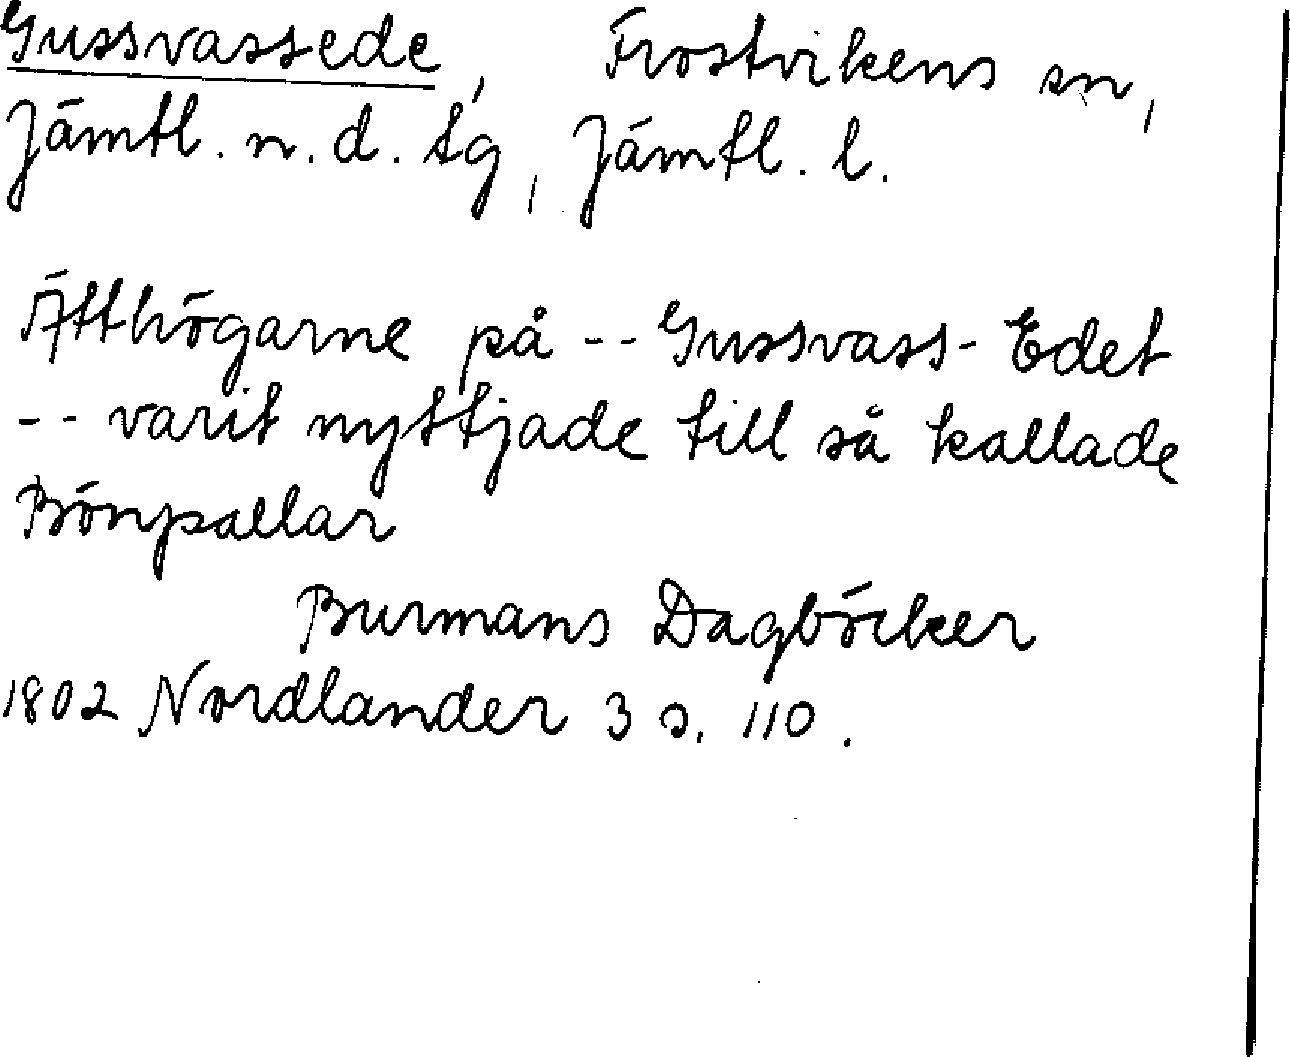 Gussvassede, Frostvikens sn,
Jämtl. n. d. tg, Jämtl. l.
Ätthögarne på -- Gussvass-Edet
-- varit nyttjade till så kallade
Bönpallar
Burmans Dagböcker
1802 Nordlander 3 s. 110.